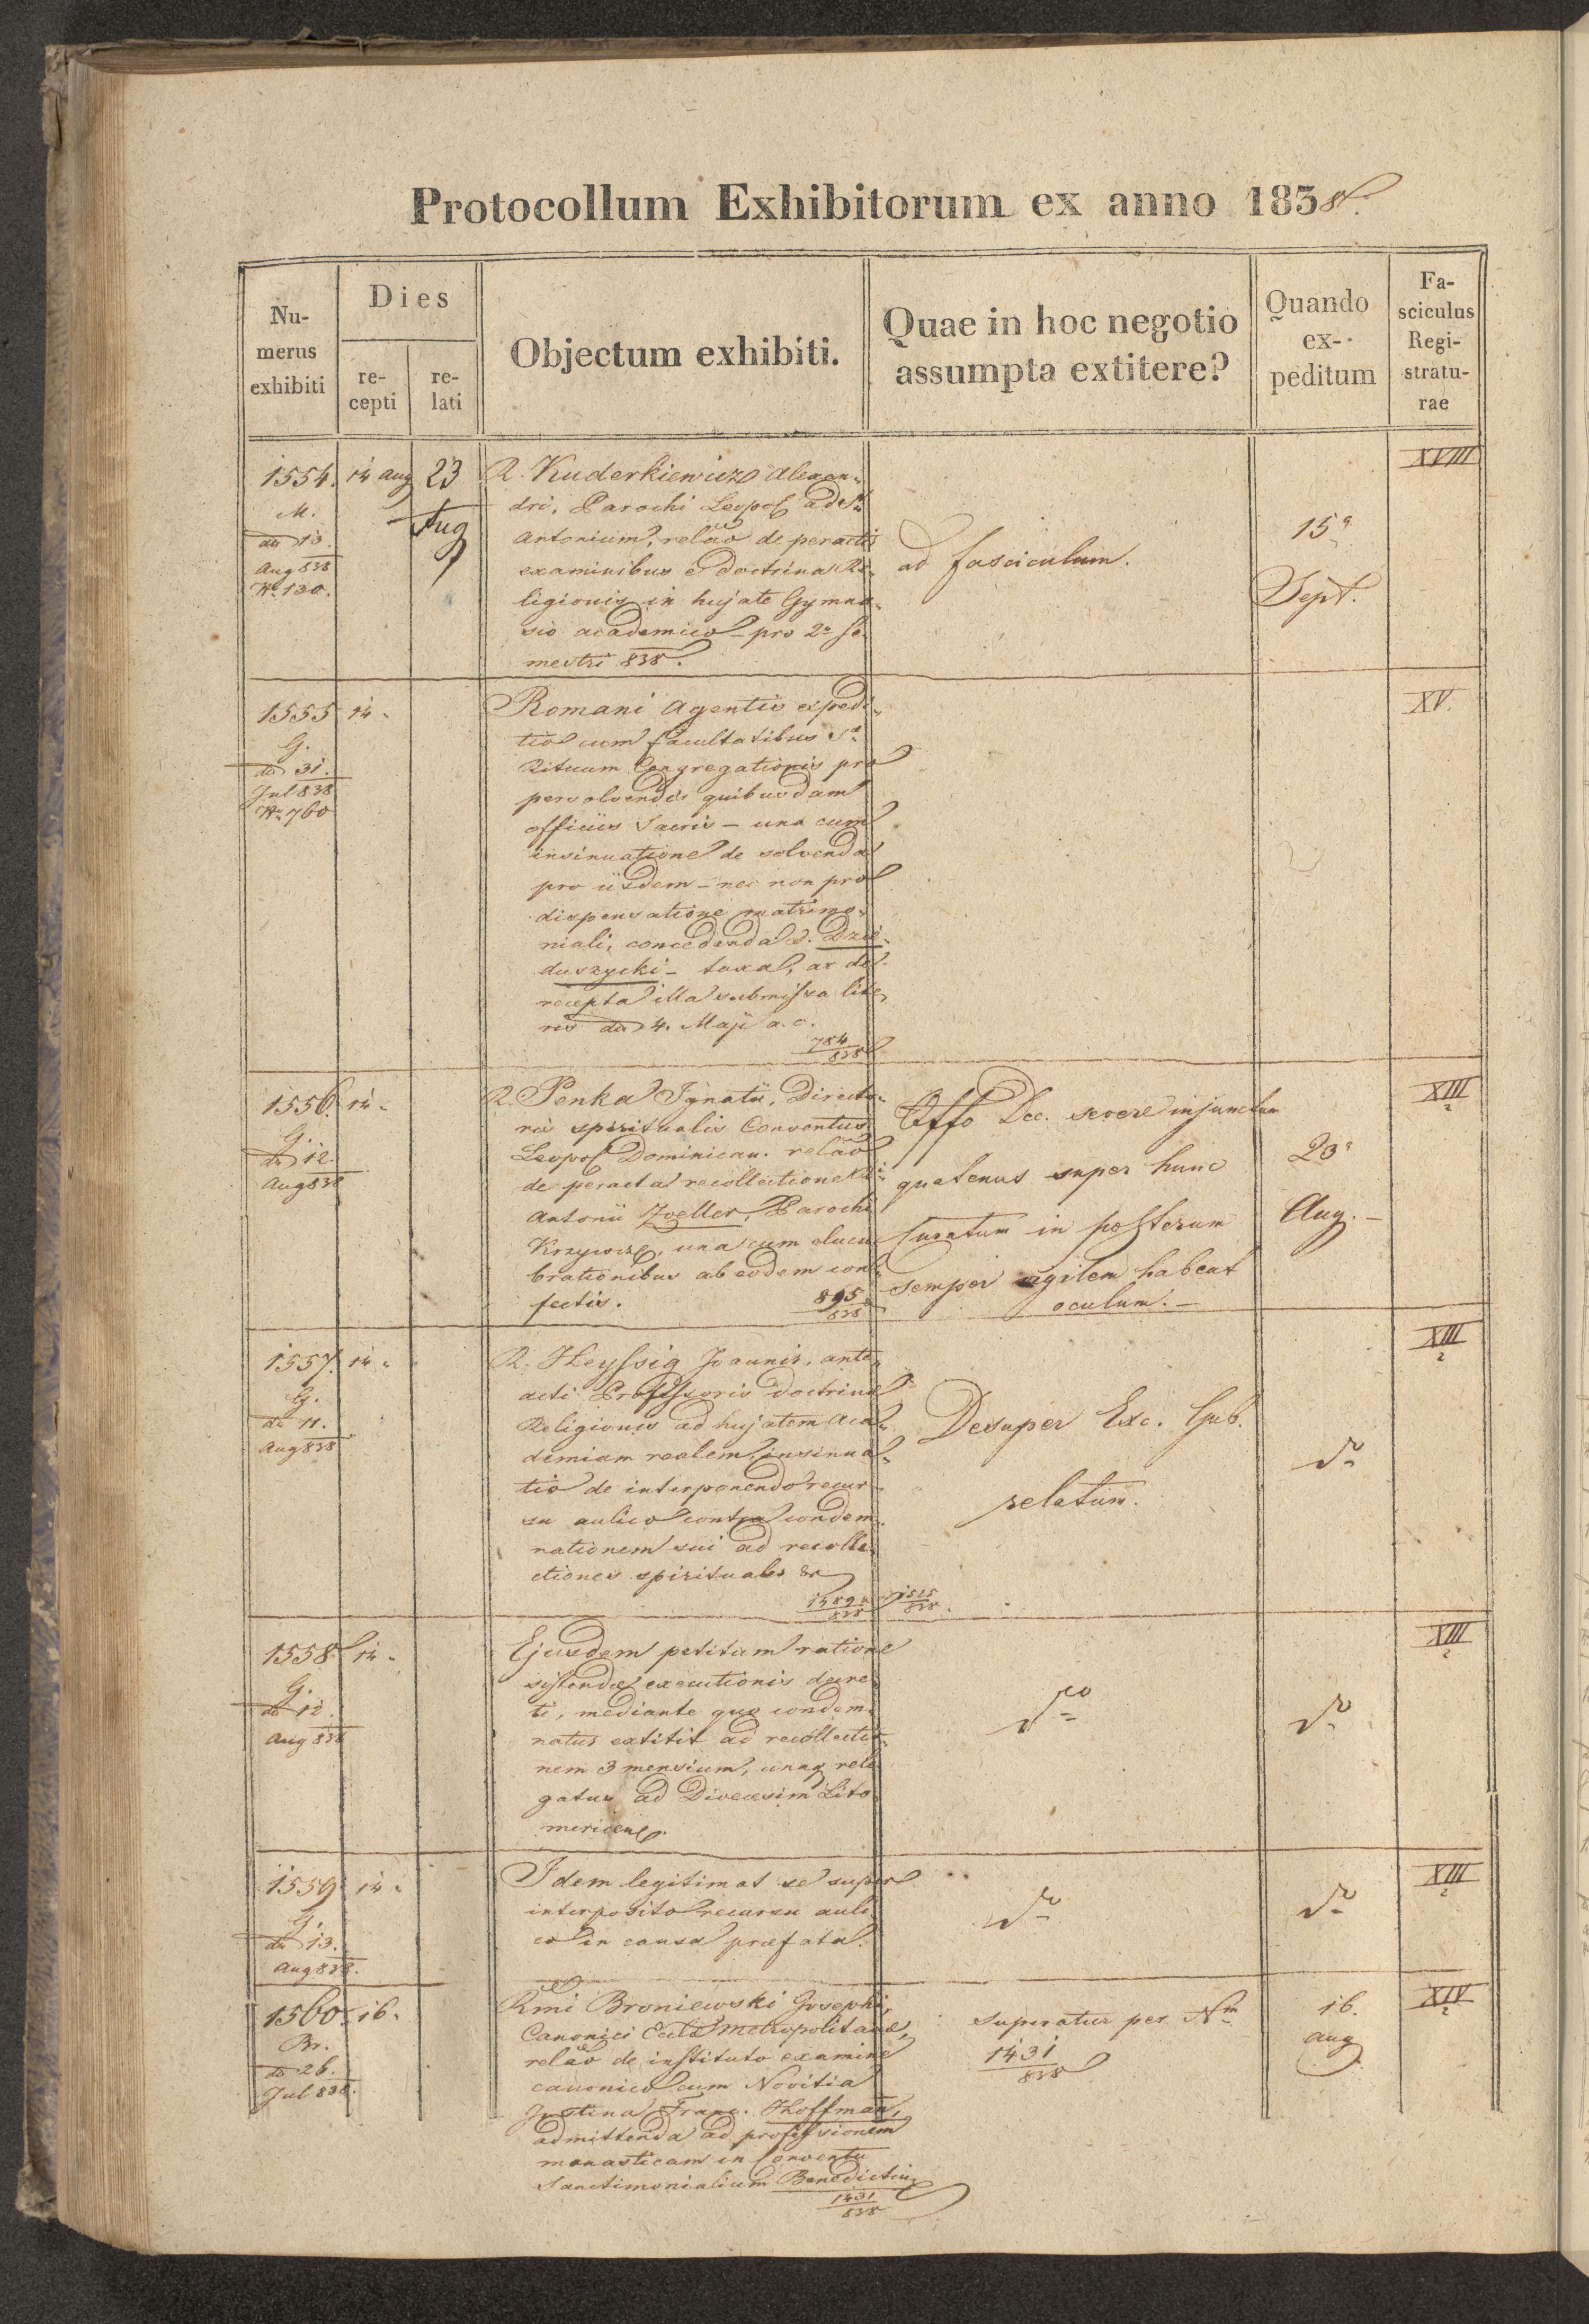 Protocollum Exhibitorum ex anno 1838.
Nu-
merus
exhibiti
Dies
re-
cepti
re-
lati
Objectum exhibiti.
Quae in hoc negotio
assumpta extitere?
Quando
ex-
peditum
Fa-
sciculus
Regi-
stratu-
rae
1554. 14 Aug 23
M.
Aug
do 13.
Aug 838
No 130.
R. Kuderkiewicz Alexan-
dri, Parochi Leopol ad St.
Antonium, relão de peractis
examinibus e doctrina Re-
ligionis in hujate Gymna-
sio academico pro 2o se-
mestri 838.
ad fasciculum.
15a
Sept.
XVIII
1555 14 "
G.
do 31.
Jul 838
No 760
Romani Agentis expedi-
tio cum facultatibus Sa
Rituum Congregationis pro
persolvendis quibusdam
officiis Sacris – una cum
insinuatione de solvenda
pro iisdem – nec non pro
dispensatione matrimo-
niali, concedenda d. Dzie-
duszycki – taxa, ac de
recepta illa submissa lite-
ris do 4. Maji a. c.
784
838
XV.
1556. 14 "
G.
do 12.
Aug 838
R. Penka Ignatii, Directo-
ris spiritualis Conventus
Leopol Dominican. relão
de peracta recollectione R.
Antonii Zoeller, Parochi
Krzywcze, una cum elucu-
brationibus ab eodem con-
fectis.
895
838
Offo Dec. severe injunctum
quatenus super hunc
Curatum in posterum
semper vigilem habeat
oculum. –
23a
Aug. –
XIII
2
1557. 14 "
G.
do 11.
Aug 838
R. Heyssig Joannis, ante-
acti Professoris doctrinae
Religionis ad hujatem Aca-
demiam realem insinua-
tio de interponendo recur-
su aulico contra condem-
nationem sui ad recolle-
ctiones spirituales &
1525
838
Desuper Exc. Gub.
relatum.
do
XIII
2
1558 14 "
G.
do 12.
Aug 838
Ejusdem petitum ratione
sistendae executionis decre-
ti, mediante quo condem-
natus extitit ad recollectio-
nem 3 mensium, unaq rele-
gatus ad Dioecesim Lito-
mericens.
dto
do
XIII
2
1559 14 "
G.
do 13.
Aug 838.
Idem legitimat se super
interposito recursu auli-
co in causa praefata.
do
do
XIII
2
1560. 16.
Br.
do 26.
Jul 838.
Rmi Broniewski Josephi,
Canonici Eccla Metropolitanae,
relão de instituto examine
canonico cum Novitia
Justina Franc. Hoffman,
admittenda ad professionem
monasticam in Conventu
Sanctimonialium Benedictin
1431
838
Superatur per Nm
1431
838
16.
Aug
XIV
2